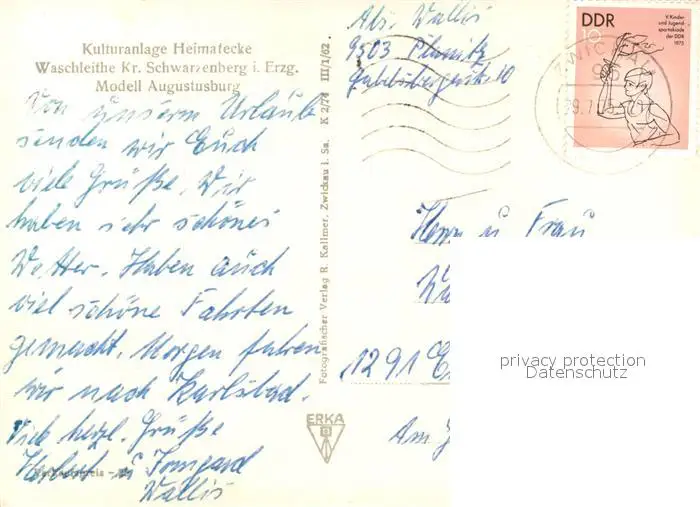 Kulturanlage Heimatecke
Waschleithe Kr. Schwarzenberg i. Erzg.
Modell Augustusburg
Von unserm Urlaub
senden wir Euch
viele Grüße. Wir
haben sehr schönes
Wetter. Haben auch
viel schöne Fahrten
gemacht. Morgen fahren
wir nach Karlsbad.
Viele herzl. Grüße
u Irmgard
Wallis
Fotografischer Verlag R. Kallmer, Zwickau i. Sa. K 2/74 III/1/62
ERKA
Abs. Wallis
9503 Planitz
10
DDR
10
V. Kinder-
und Jugend-
spartakiade
der DDR
1975
ZWICKAU
Herrn u Frau
1291
Am
privacy protection
Datenschutz